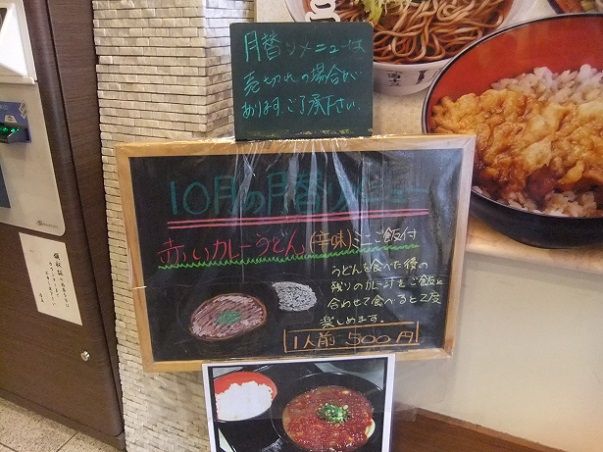 月替りメニューは
売切れの場合が
あります。ご了承下さい。
10月の月替りメニュー
赤いカレーうどん(辛味)ミニご飯付
うどんを食べた後の
残りのカレー汁をご飯と
合わせて食べると2度
楽しめます。
1人前 500円